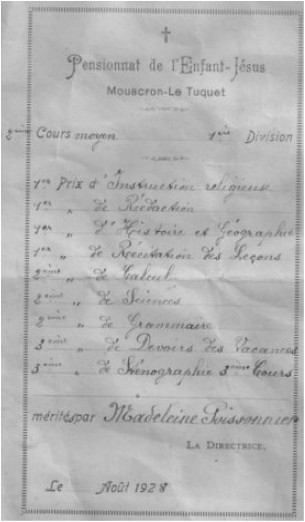 Pensionnat de l'Enfant-Jésus
Mouscron-Le Tuquet
2ème Cours moyen 1ère Division
1er Prix d'Instruction religieuse
1er „ de Rédaction
1er „ d'Histoire et Géographie
1er „ de Récitation des Leçons
2ème „ de Calcul
2ème „ de Sciences
2ème „ de Grammaire
3ème „ de Devoirs des Vacances
3ème „ de Sténographie 3ème Cours
mérités par Madeleine Poissonnier
LA DIRECTRICE,
Le Août 1928